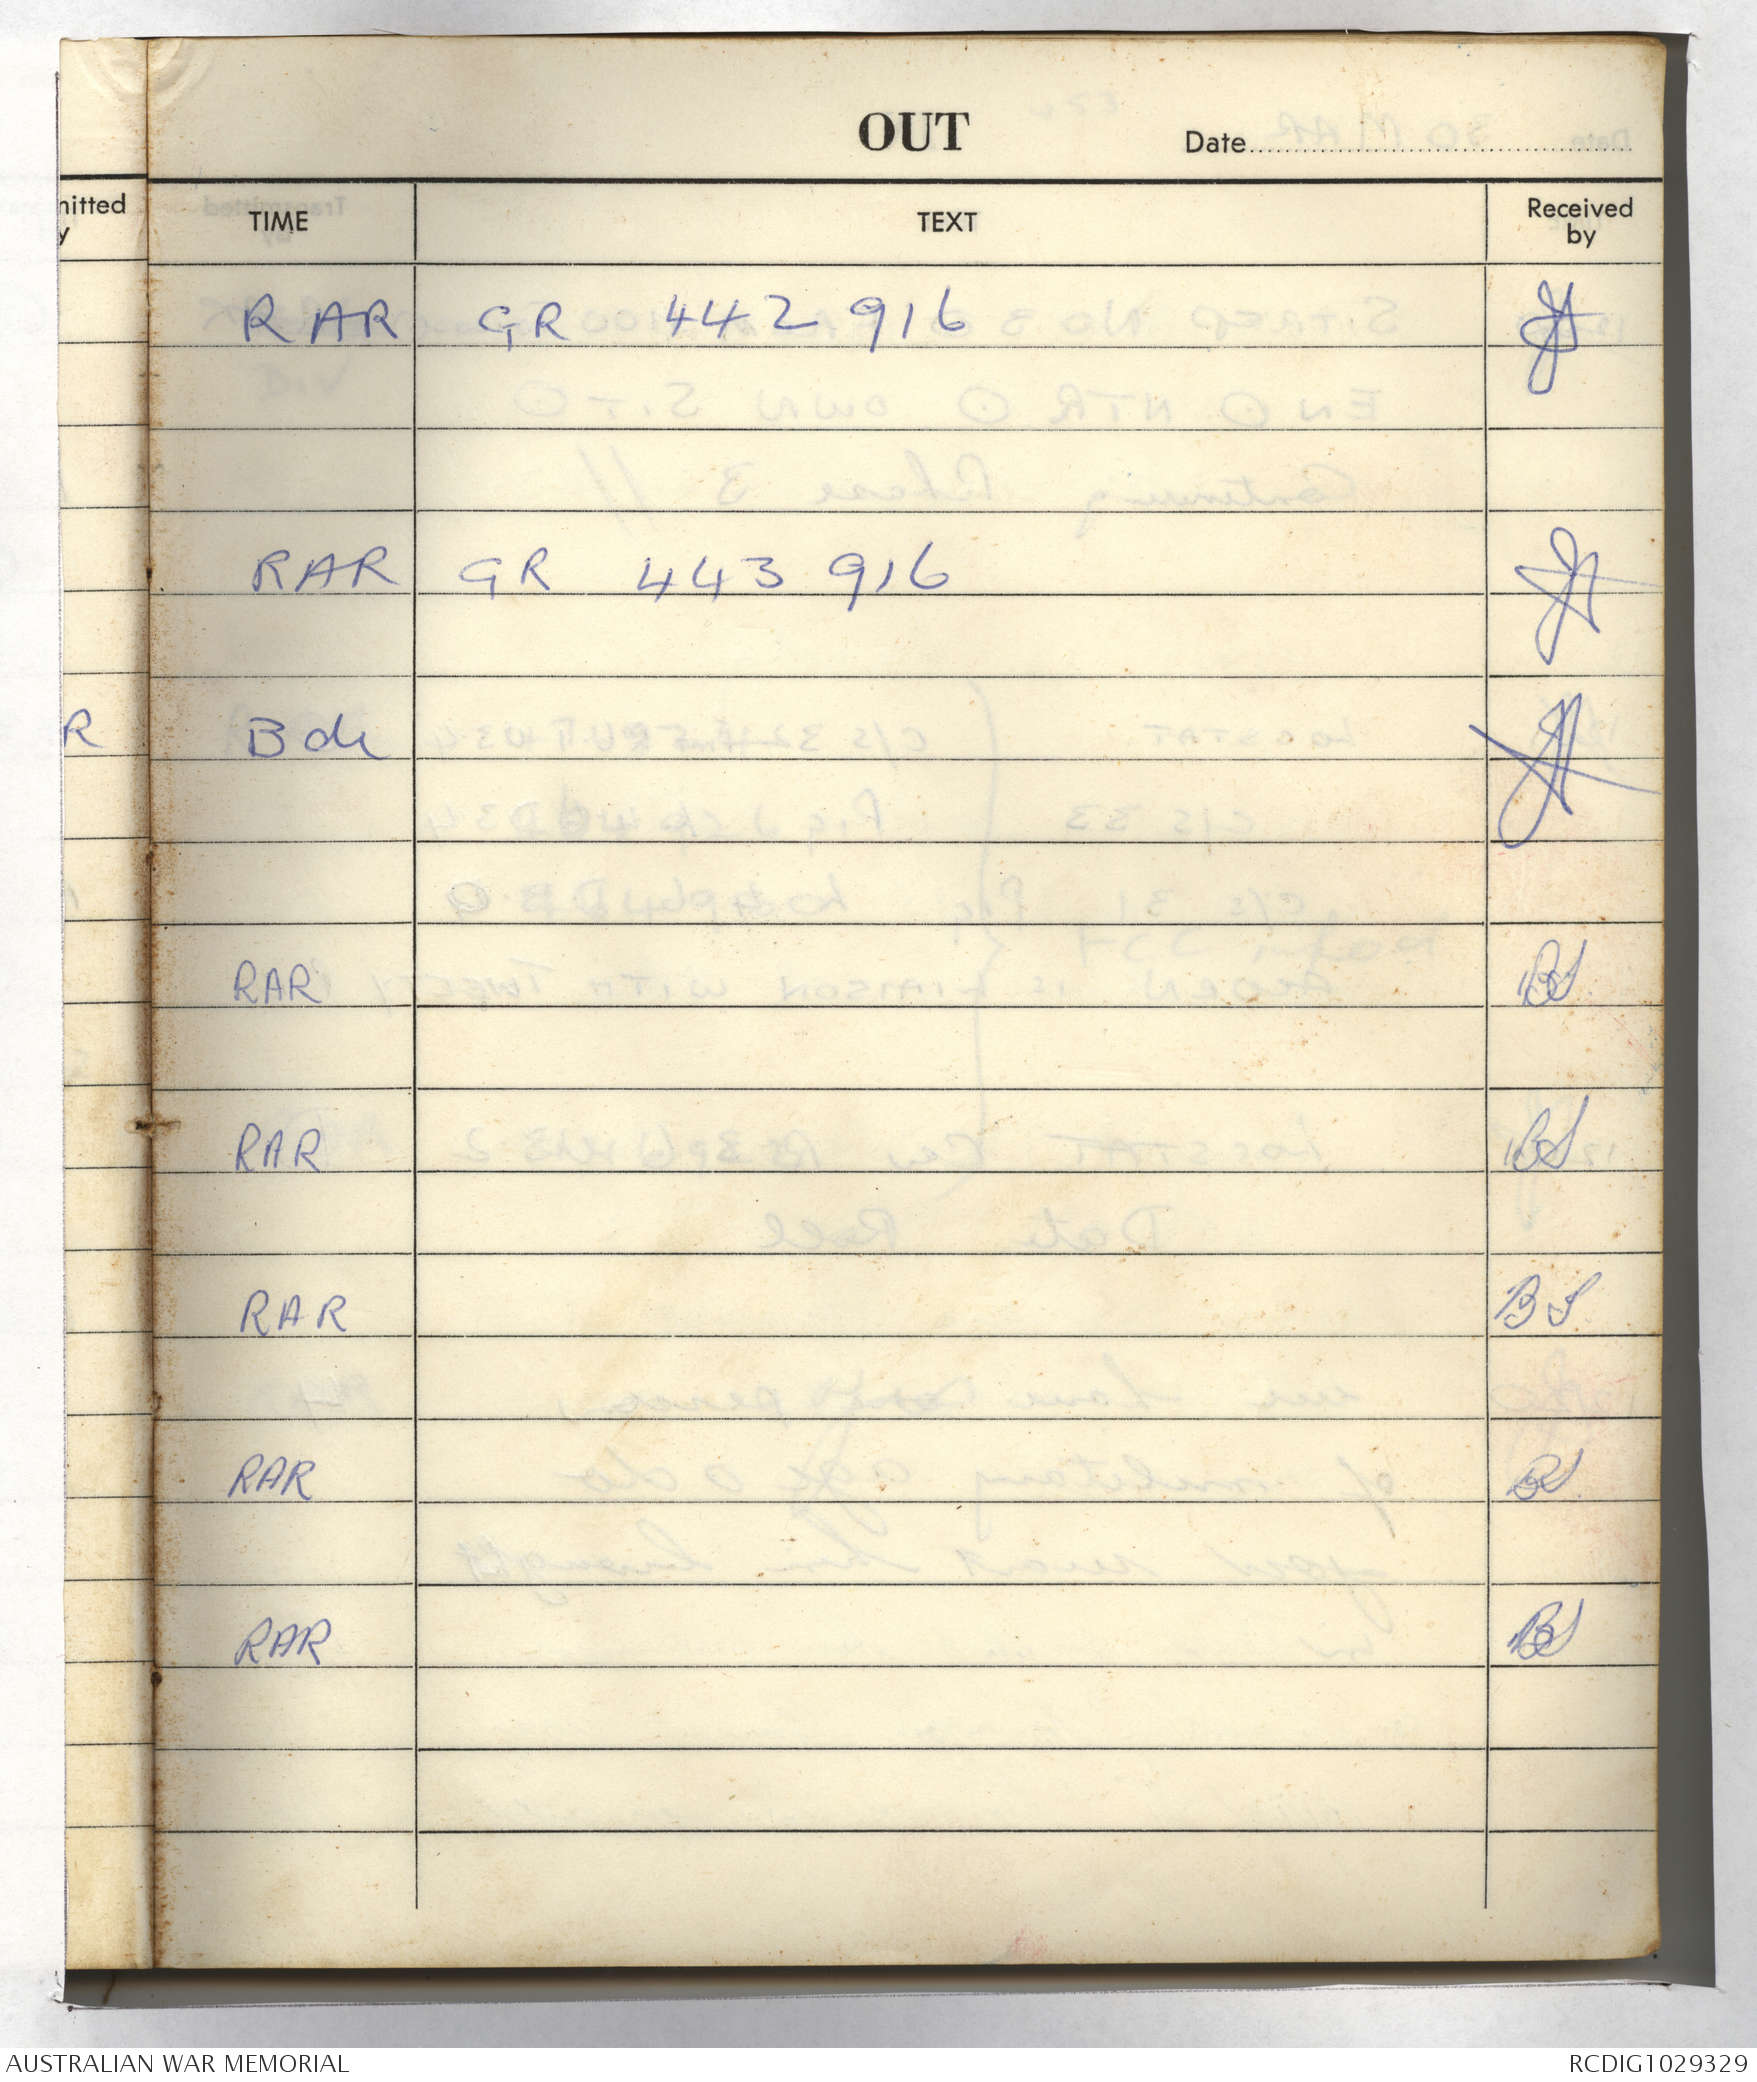 OUT
Date
nitted
y
TIME
TEXT
Received
by
RAR GR 442 916
RAR GR 443 916
R
RAR BS
RAR BS
RAR BS
RAR BS
RAR BS
AUSTRALIAN WAR MEMORIAL
RCDIG1029329